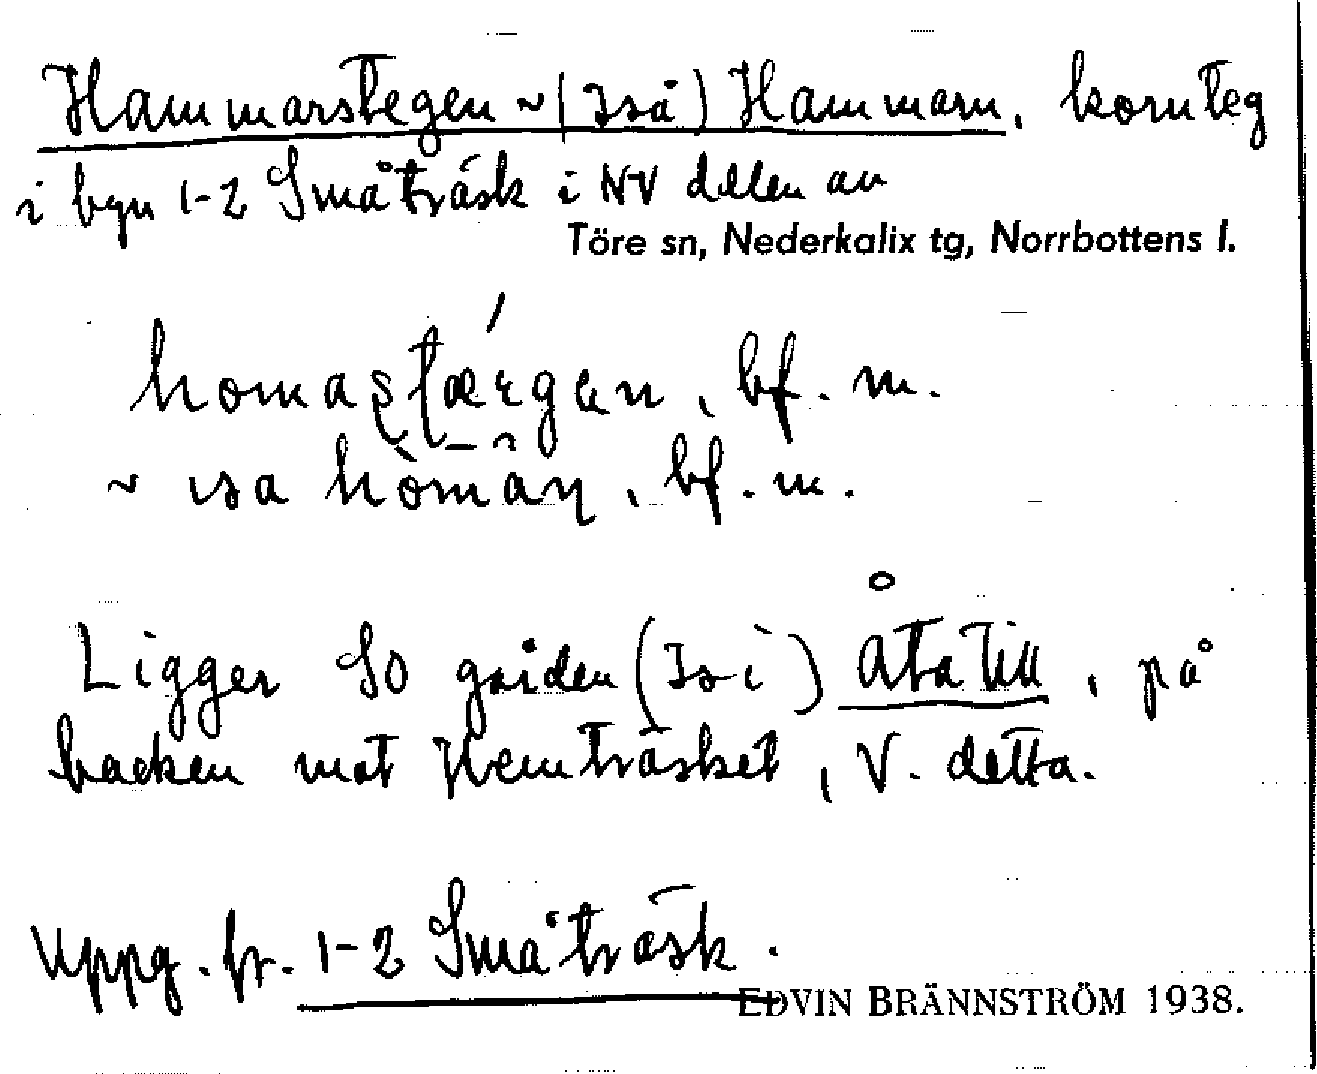 Hammarstegen ~ (Iså) Hammarn, kornteg
i byn 1-2 Småträsk i NV delen av
Töre sn, Nederkalix tg, Norrbottens l.
bf. m.
~ ısa bf. m.
Ligger SO gården (Isi) Åtatill, på
backen mot Hemträsket, V. detta.
Uppg. fr. 1-2 Småträsk.
EDVIN BRÄNNSTRÖM 1938.